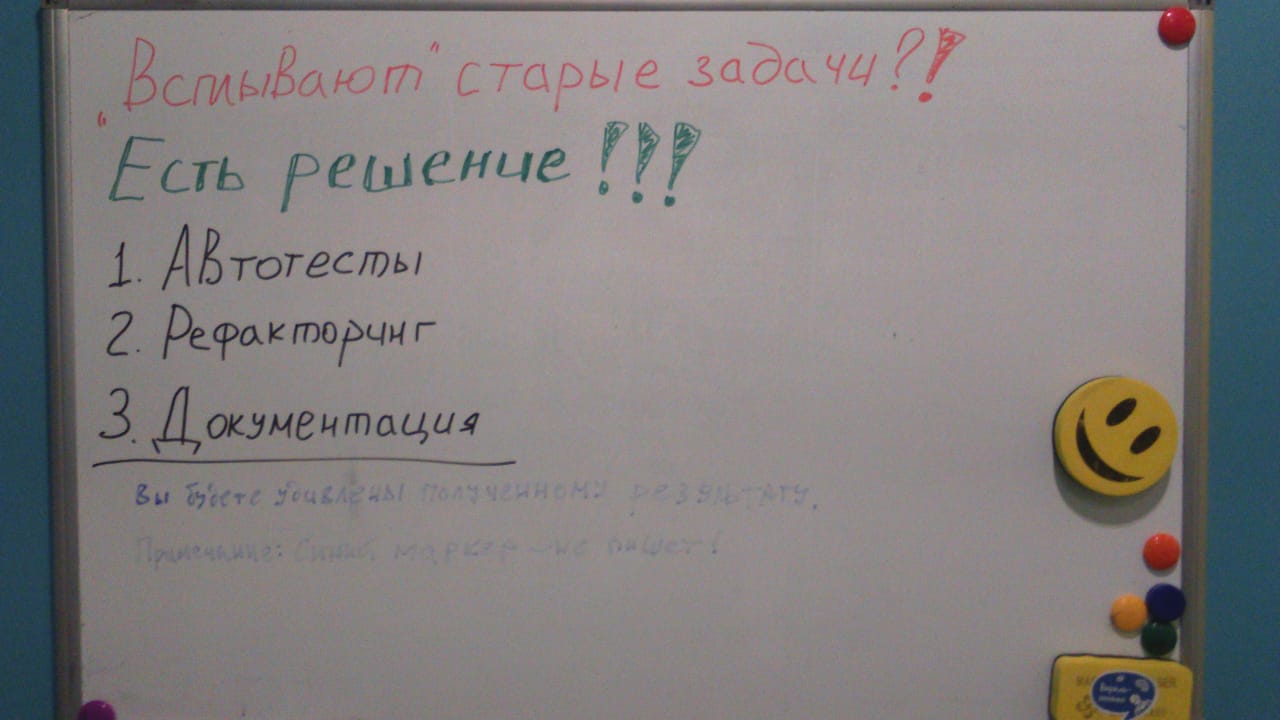 „Всплывают" старые задачи?!
Есть решение!!!
1. Автотесты
2. Рефакторинг
3. Документация
Вы будете удивлены полученному результату.
Примечание: Синий маркер – не пишет!